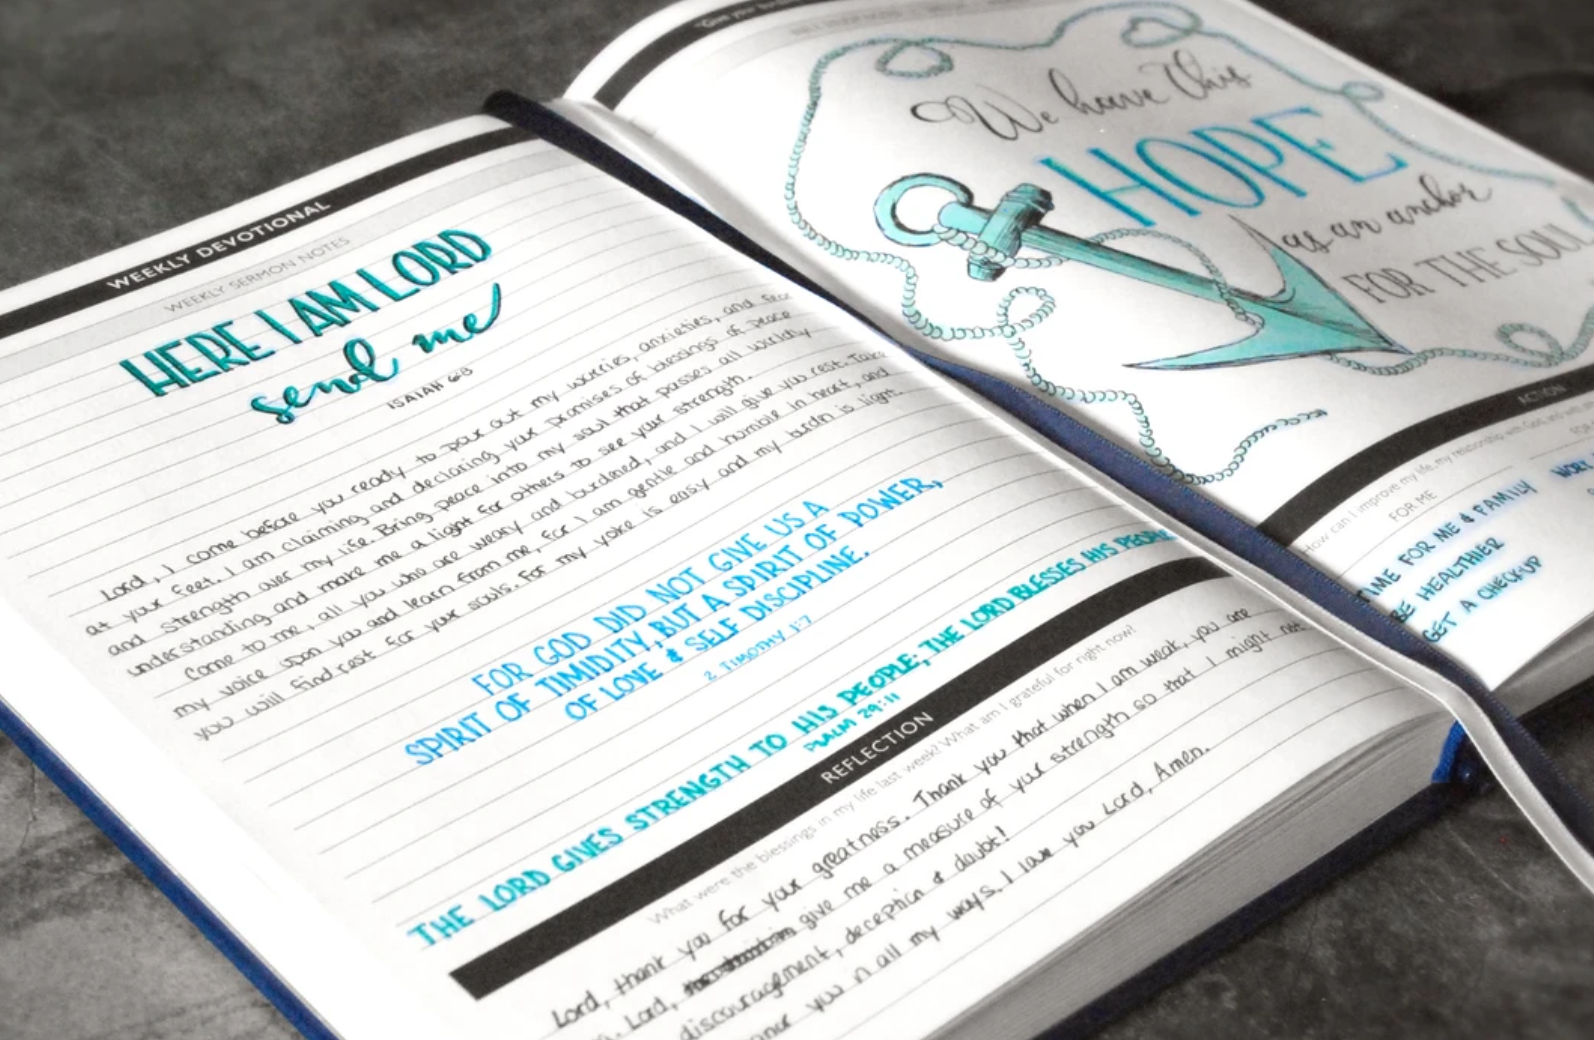 WEEKLY DEVOTIONAL
WEEKLY SERMON NOTES
HERE I AM LORD
send me
ISAIAH 6:8
Lord, I come before you ready to pour out my worries, anxieties, and fear
at your feet. I am claiming and declaring your promises of blessings of peace
and strength over my life. Bring peace into my soul that passes all worldly
understanding and make me a light for others to see your strength.
Come to me, all you who are weary and burdened, and I will give you rest. Take
my voice upon you and learn from me, for I am gentle and humble in heart, and
you will find rest for your souls. For my yoke is easy and my burdn is light.
FOR GOD DID NOT GIVE US A
SPIRIT OF TIMIDITY, BUT A SPIRIT OF POWER,
OF LOVE & SELF DISCIPLINE.
2 TIMOTHY 1:7
THE LORD GIVES STRENGTH TO HIS PEOPLE; THE LORD BLESSES HIS PEOPL
PSALM 29:11
REFLECTION
What were the blessings in my life last week? What am I grateful for right now?
Lord, thank you for your greatness. Thank you that when I am weak, you are
Lord, give me a measure of your strength so that I might not
discouragement, deception & doubt!
you in all my ways. I love you Lord, Amen.
We have this
HOPE
as an anchor
FOR THE SOUL
ACTION
How can I improve my life, my relationship with God, and
FOR ME
TIME FOR ME & FAMILY
BE HEALTHIER
GET A CHECK-UP
WORK